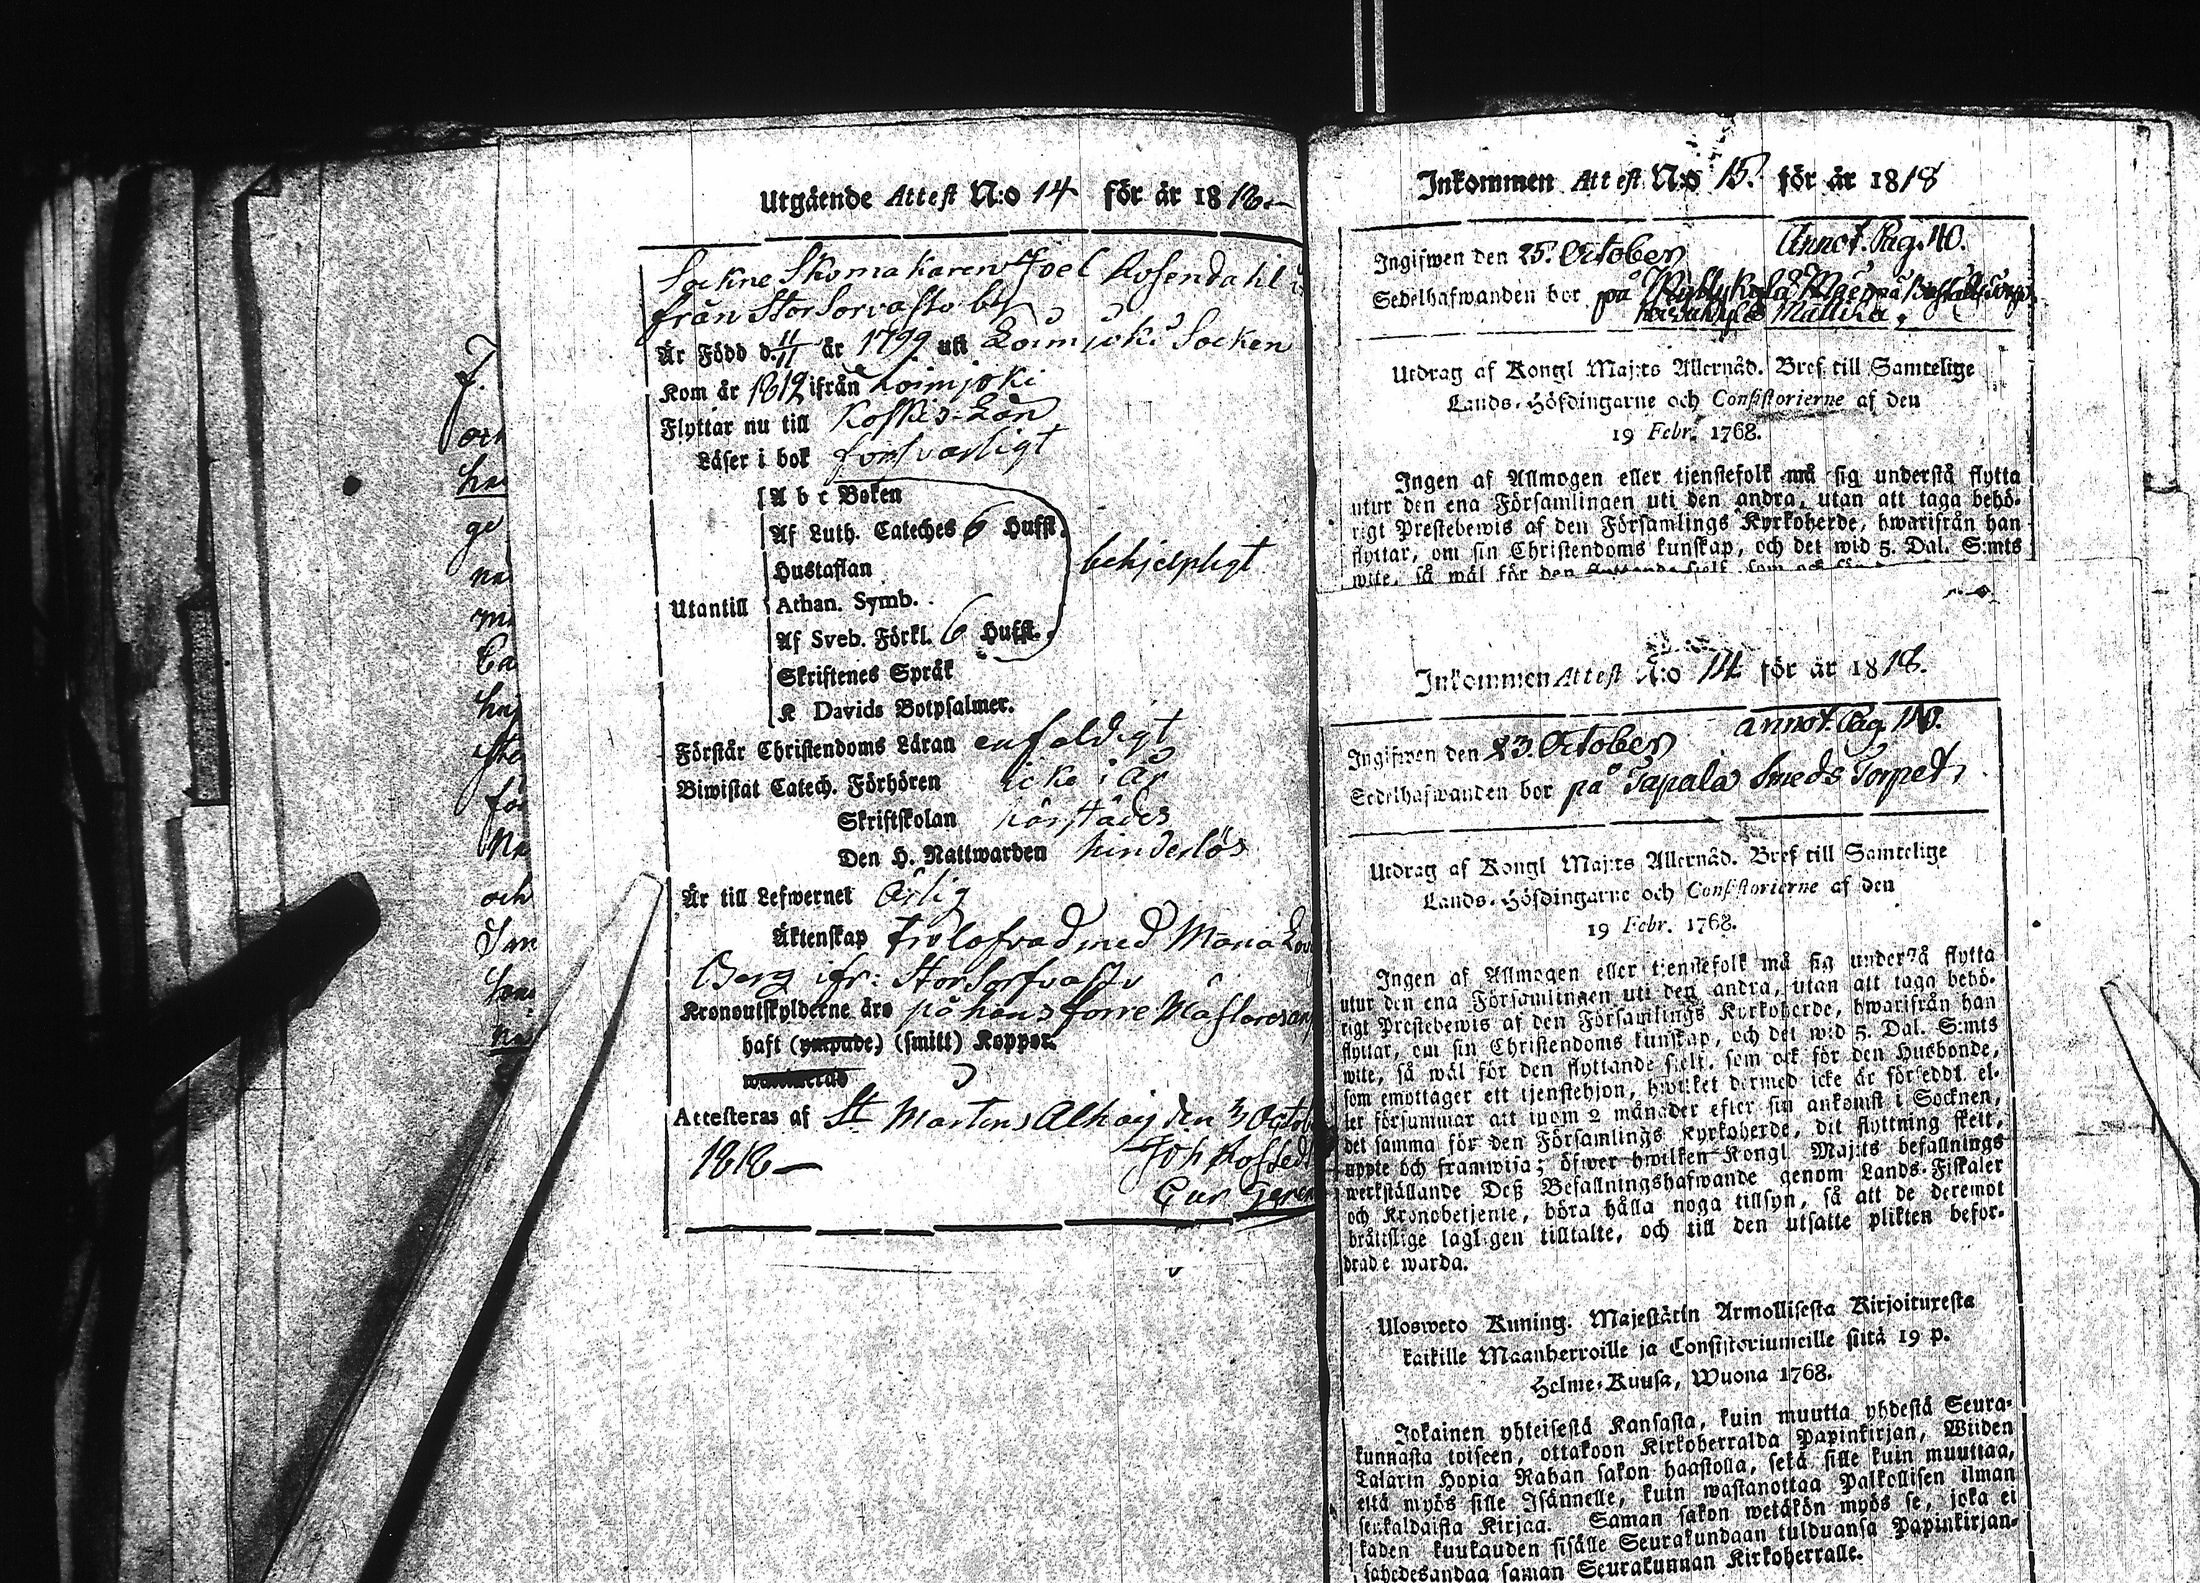 Utgående Attest N:o 14 för år 1818.
Sockne Skomakaren Joel Rosendahl
från Stor Sorvasto by
Är Född d. 11/11 år 1799 uti Loimjoki Socken
Kom år 1812 ifrån Loimjoki
Flyttar nu till Koskis-Län
Läser i bok forsvarligt
A b c Boken
Af Luth. Cateches 6 Huffst.
Hustaflan
behjelpligt
Utantill Athan. Symb.
Af Sveb. Förkl. 6 Huffst.
Skriftenes Språk
K Davids Botpsalmer.
Förstår Christendoms Läran enfaldigt
Biwistat Catech. Förhören icke i år
Skriftskolan härstädes
Den H. Nattwarden hinderlös
Är till Lefwernet Ärlig
Äktenskap Trolofvad med Maria
Berg ifr: Stor Sorfvasto
Kronoutskylderne äro på hans förre Mästares
haft (ympade,) (smitt) Koppor.
Attesteras af St Mårtens den 3 Octob
1818
Joh
Inkommen Attest N:o 15. för år 1818
Ingifwen den 25. October Annot. Pag. 40.
Sedelhafwanden bor på
Mattila.
Utdrag af Kongl Maj:ts Allernåd. Bref till Samtelige
Lands-Höfdingarne och Consistorierne af den
19 Febr. 1768.
Ingen af Allmogen eller tjenstefolk må sig understå flytta
utur den ena Församlingen uti den andra, utan att taga behö-
rigt Prestebewis af den Församlings Kyrkoherde, hwarifrån han
flyttar, om sin Christendoms kunskap, och det wid 5. Dal. S:mts
wite, så wäl för den
Inkommen Attest N:o 14 för år 1818.
Ingifwen den 23. October annot. Pag. 40.
Sedelhafwanden bor på Tapala Smeds Torpet
Utdrag af Kongl Maj:ts Allernåd. Bref till Samtelige
Lands-Höfdingarne och Consistorierne af den
19 Febr. 1768.
Ingen af Allmogen eller tjenstefolk må sig understå flytta
utur den ena Församlingen uti den andra, utan att taga behö-
rigt Prestebewis af den Församlings Kyrkoherde, hwarifrån han
flyttar, om sin Christendoms kunskap, och det wid 5. Dal. S:mts
wite, så wäl för den flyttande sjelf, som ock för den Husbonde,
som emottager ett tjenstehjon, hwilket dermed icke är försedt, el-
ler försummar att inom 2 månader efter sin ankomst i Socknen,
det samma för den Församlings Kyrkoherde, dit flyttning skett,
uppte och framwisa; öfwer hwilken Kongl Maj:ts befallnings
werkställande Deß Befallningshafwande genom Lands-Fiskaler
och Kronobetjente, böra hålla noga tillsyn, så att de deremot
bråttslige lagligen tilltalte, och till den utsatte plikten befor-
drade warda.
Ulosweto Kuning. Majestätin Armollisesta Kirjoituxesta
kaikille Maanherroille ja Consistoriumeille siitä 19 p.
Helme-Kuusa, Wuona 1768.
Jokainen yhteisestä Kansasta, kuin muutta yhdestä Seura-
kunnasta toiseen, ottakoon Kirkoherralda Papinkirjan, Wiiden
Talarin Hopia Rahan sakon haastolla, sekä sille kuin muuttaa,
että myös sille Isännelle, kuin wastanottaa Palkollisen ilman
senkaldaista Kirjaa. Saman sakon wetäkön myös se, joka ei
kahden kuukauden sisälle Seurakundaan tulduansa Papinkirjan-
sa saman Seurakunnan Kirkoherralle.